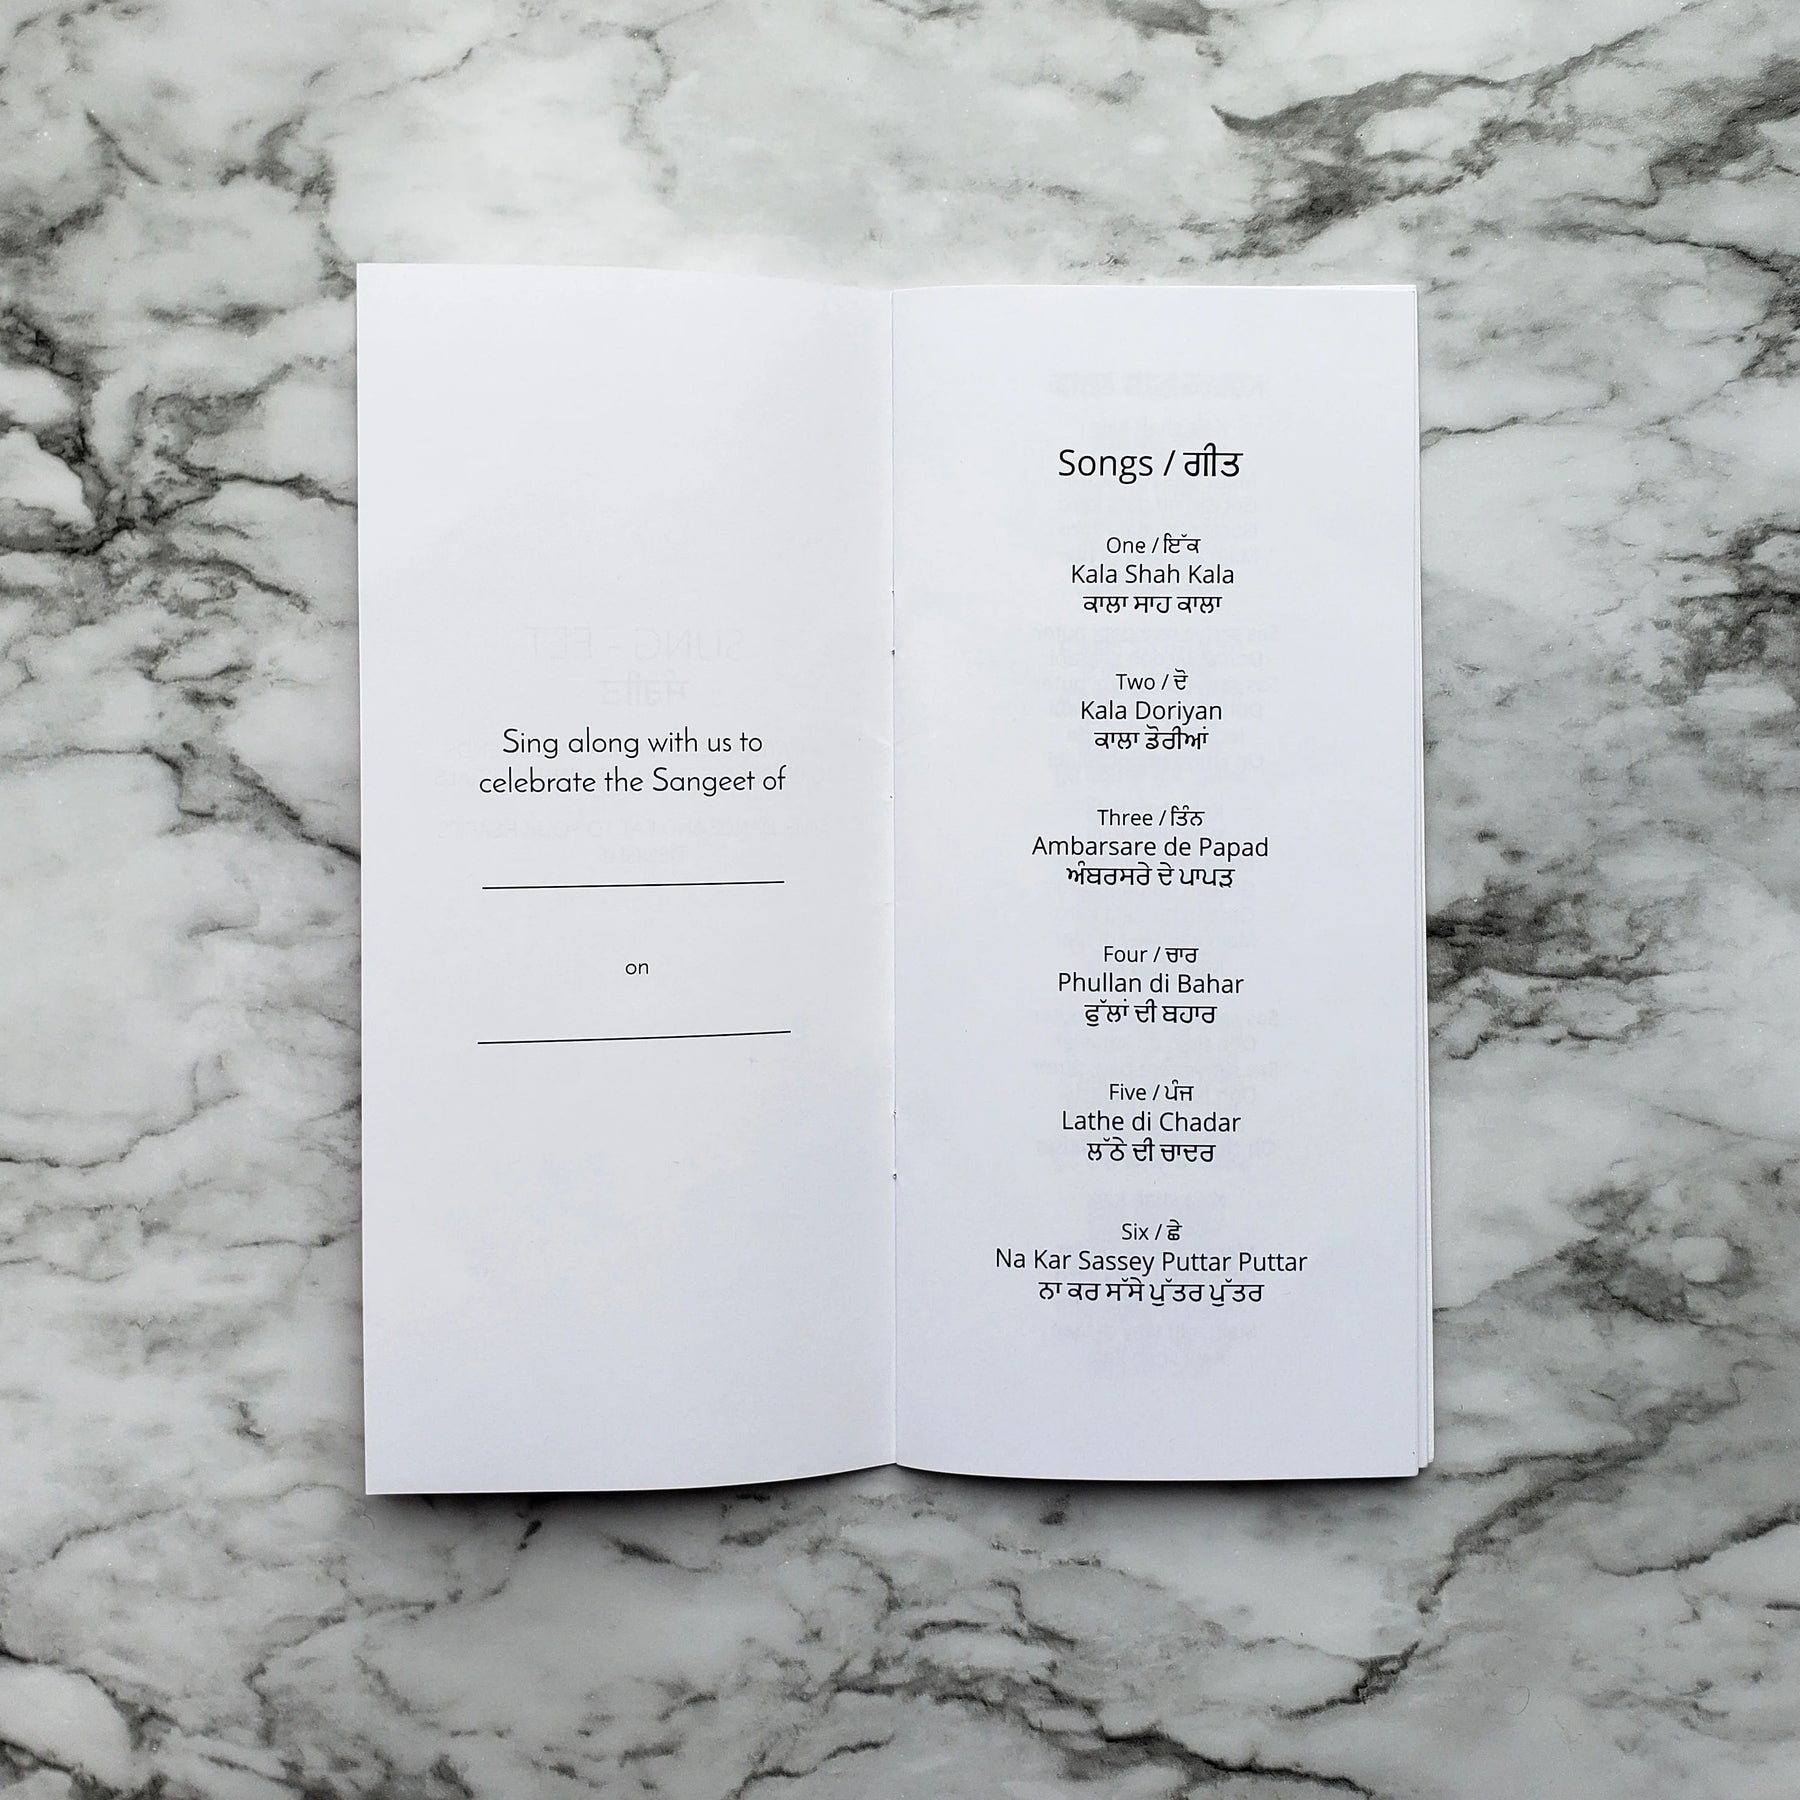 Sing along with us to
celebrate the Sangeet of
on
Songs / ਗੀਤ
One / ਇੱਕ
Kala Shah Kala
ਕਾਲਾ ਸਾਹ ਕਾਲਾ
Two / ਦੋ
Kala Doriyan
ਕਾਲਾ ਡੋਰੀਆਂ
Three / ਤਿੰਨ
Ambarsare de Papad
ਅੰਬਰਸਰੇ ਦੇ ਪਾਪੜ
Four / ਚਾਰ
Phullan di Bahar
ਫੁੱਲਾਂ ਦੀ ਬਹਾਰ
Five / ਪੰਜ
Lathe di Chadar
ਲੱਠੇ ਦੀ ਚਾਦਰ
Six / ਛੇ
Na Kar Sassey Puttar Puttar
ਨਾ ਕਰ ਸੱਸੇ ਪੁੱਤਰ ਪੁੱਤਰ